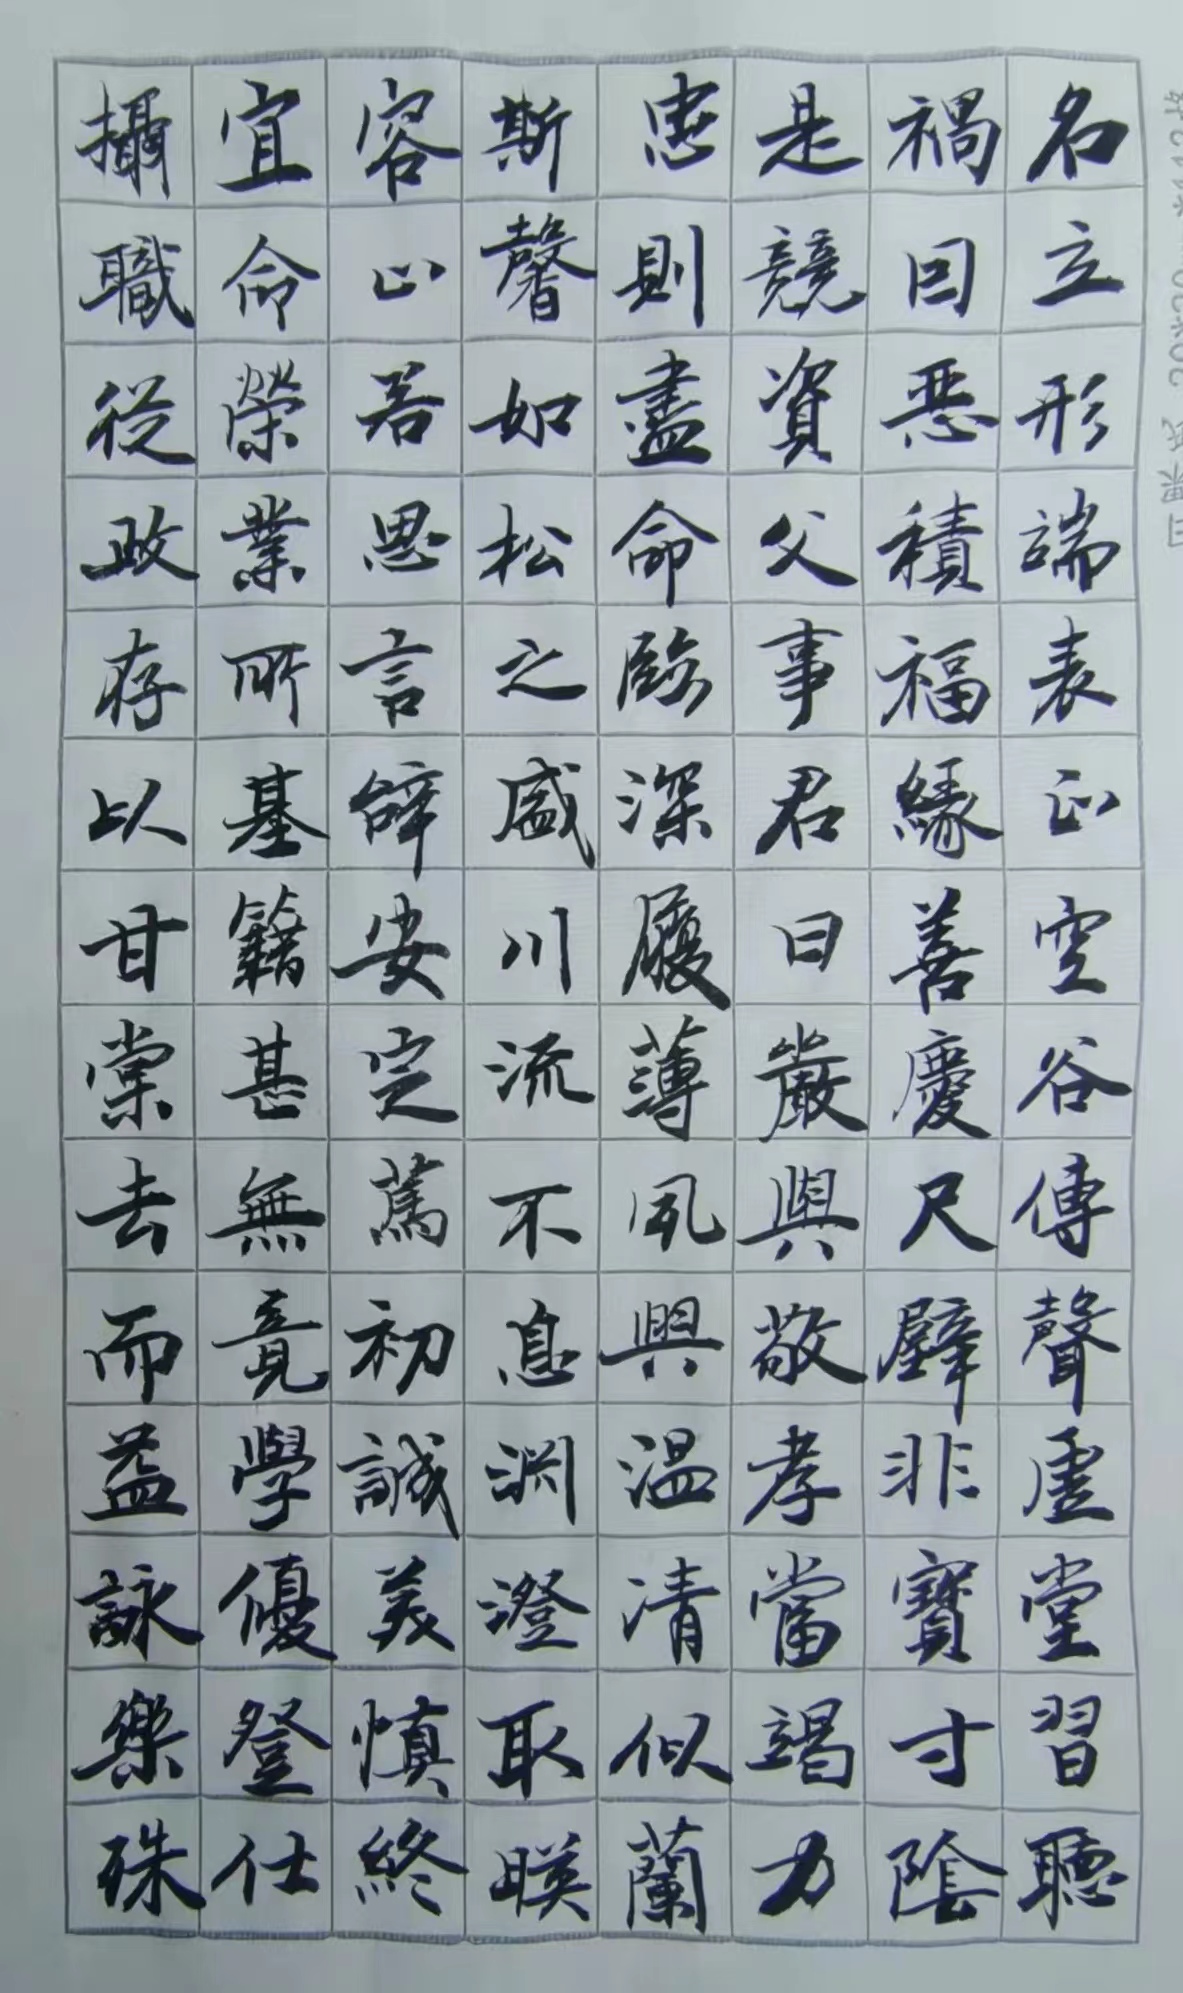 名立形端表正空谷傳聲虛堂習聽
禍因惡積福緣善慶尺璧非寶寸陰
是競資父事君曰嚴與敬孝當竭力
忠則盡命臨深履薄夙興温清似蘭
斯馨如松之盛川流不息淵澄取暎
容止若思言辭安定篤初誠美慎終
宜命榮業所基籍甚無竟學優登仕
攝職從政存以甘棠去而益詠樂殊